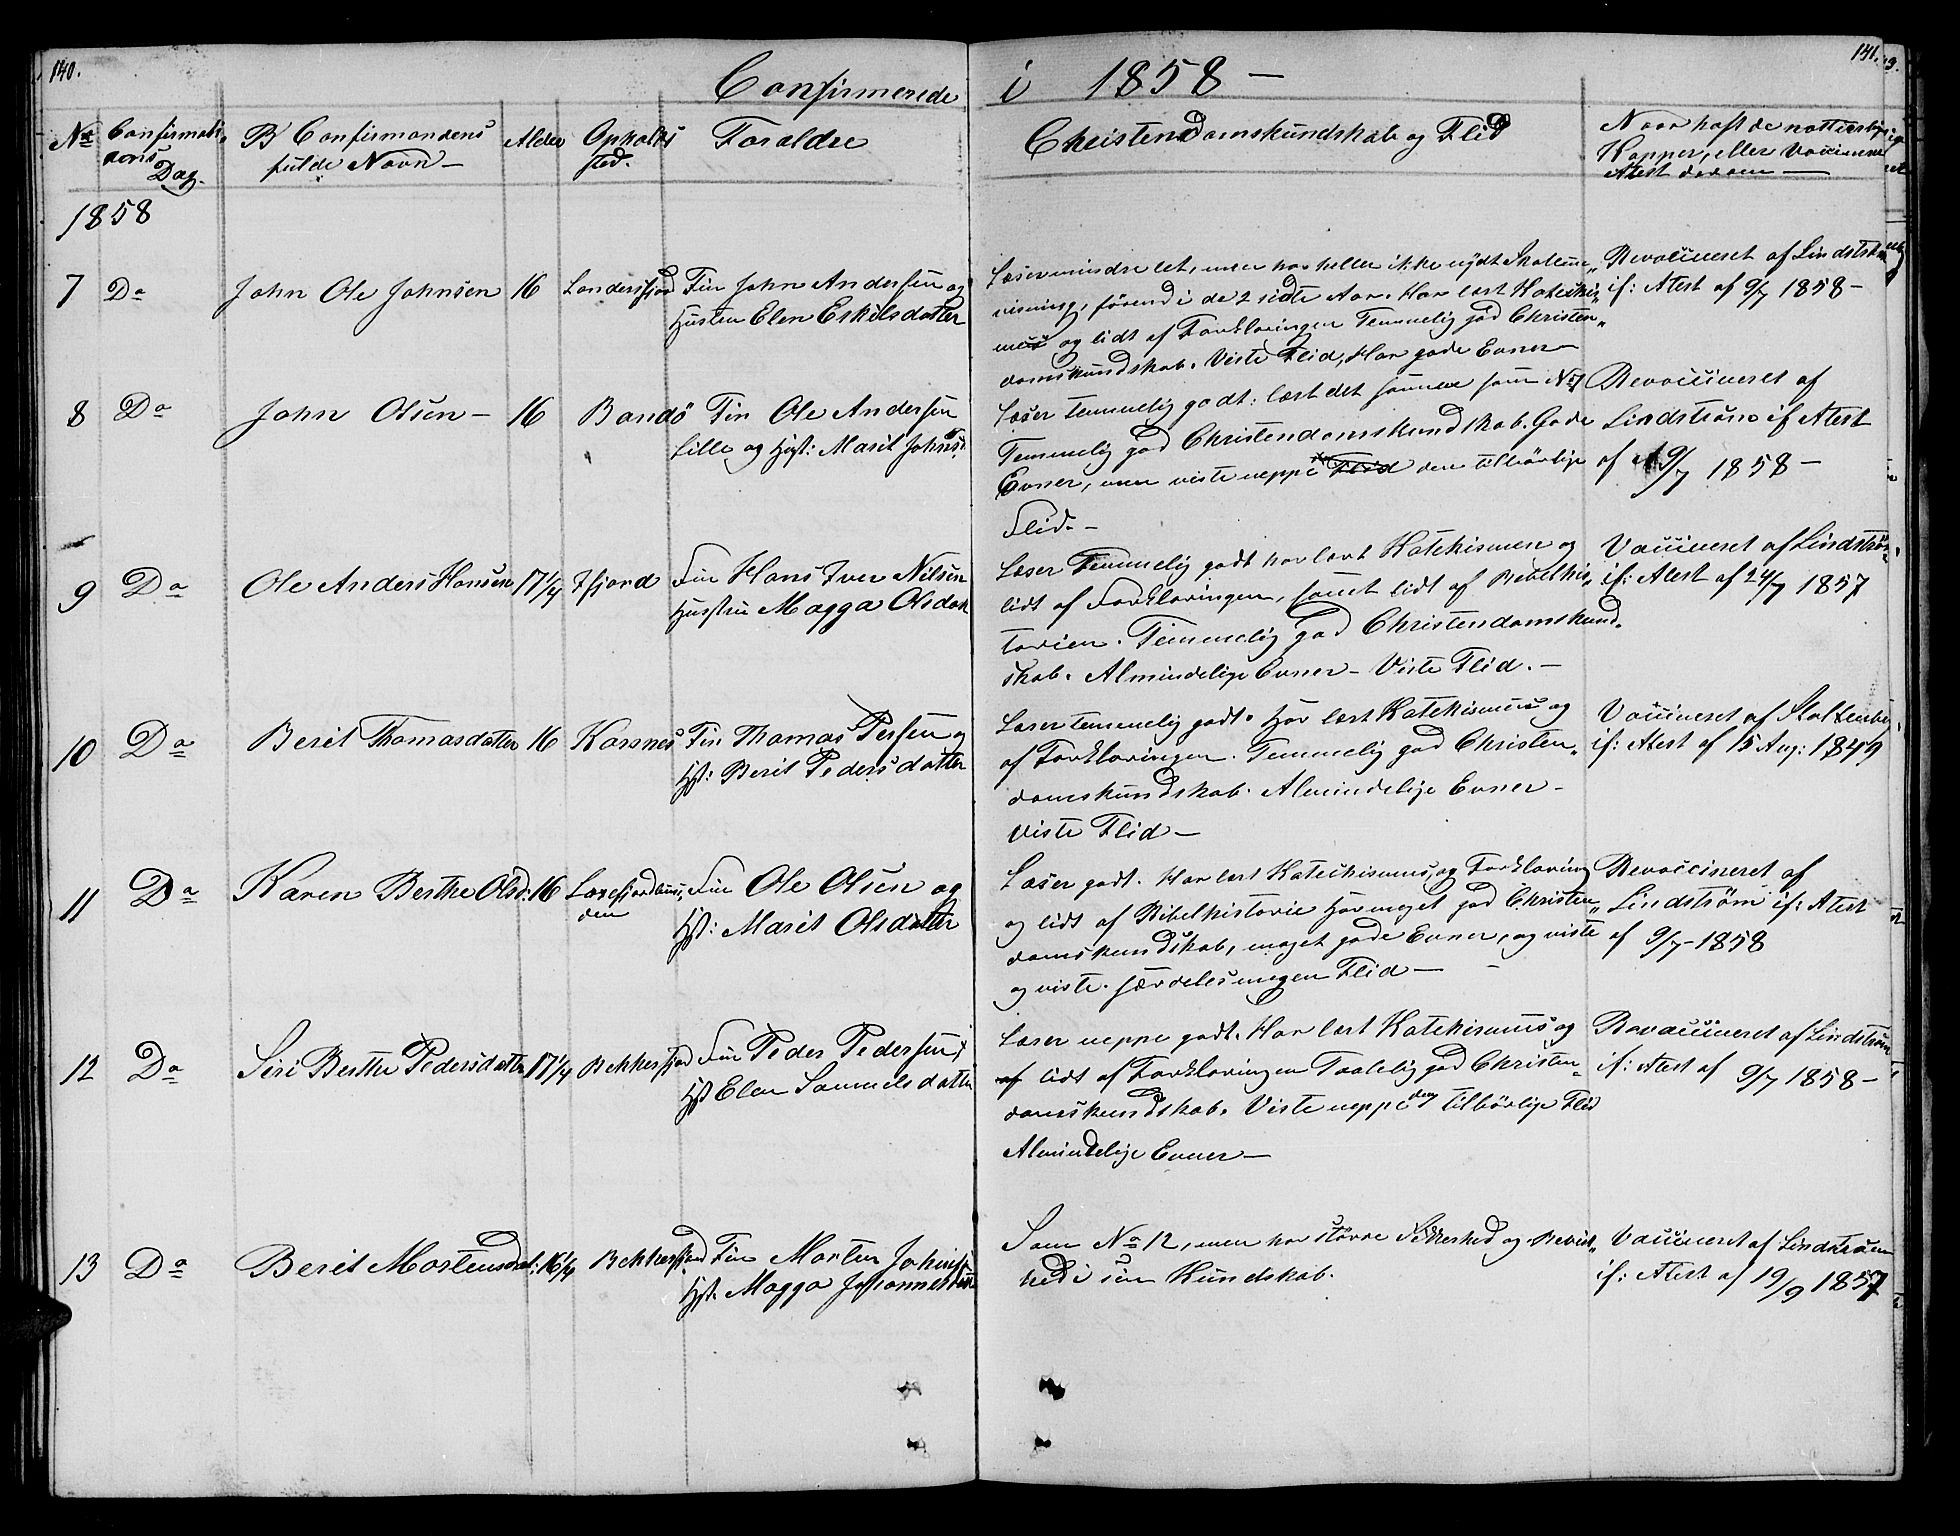 140.
141.
Confirmerede i 1858 –
No
Confirmati-
ons
Dag.
Confirmandens
fulde Navn –
Alder
Opholds
sted.
Foraldre
Christendomskundskab og Flid
Naar haft de naturlige
Kopper, eller Vaccinere
Atest derom –
1858
7 Do John Ole Johnsen 16 Landersfjord Fin John Andersen og
Hustru Elen Eskilsdatter
Læser mindre let, men har heller ikke nydt Skoleun„
visning, förend i de 2 sidste Aar. Har lært Katechis„
mus og lidt af Forklaringen Temmelig god Christen„
domskundskab. Viste Flid, Har gode Evner –
Revaccineret af Lindström
if: Atest af 9/7 1858 –
8 Do John Olsen – 16 Bandö Fin Ole Andersen
Lille og Hust: Marit Johnsd.
Læser temmelig godt: lært det samme som No 7
Temmelig god Christendomskundskab. Gode
Evner, men viste neppe den tilbörlige
Flid. –
Revaccineret af
Lindström if Atest
af 9/7 1858 –
9 Do Ole Anders Hansen 17 1/4 Ifjord Fin Hans Iver Nilsen
Hustru Magga Olsdat
Læser Temmelig godt har lært Katekismen og
lidt af Forklaringen, samt lidt af Bibelhis„
torien. Temmelig god Christendomskund„
skab. Almindelige Evner – Viste Flid. –
Vaccineret af Lindström
if: Atest af 24/7 1857
10 Do Berit Thomasdatter 16 Karsnes Fin Thomas Persen og
Hst: Berit Pedersdatter
Læser temmelig godt. Har lært Katekismus og
af Forklaringen. Temmelig god Christen„
domskundskab. Almindelige Evner –
Viste Flid –
Vaccineret af Stoltenberg
if: Atest af 15 Aug: 1849
11 Do Karen Berthe Olsd: 16 Laxefjordbun„
den
Fin Ole Olsen og
Hst: Marit Olsdatter
Læser godt. Har lært Katechismus, og Forklaring
og lidt af Bibelhistorie Har meget god Christen„
domskundskab, meget gode Evner, og viste
og viste særdeles megen Flid –
Revaccineret af
Lindström if: Atest
af 9/7 – 1858
12 Do Siri Berthe Pedersdatter 17 1/4 Bekkerfjord Fin Peder Pedersen,
Hst Elen Samuelsdatter
Læser neppe godt. Har lært Katekismus og
af lidt af Forklaringen Taalelig god Christen„
domskundskab. Viste neppe den tilbörlige Flid
Almindelige Evner –
Revaccineret af Lindström
if: Atest af 9/7 1858 –
13 Do Berit Mortensdat: 16 1/4 Bekkerfjord Fin Morten Johns
Hst. Magga Johannesdatter
Som No 12, men har större Sikkerhed og Bevist„
hed i sin Kundskab.
Vaccineret af Lindström
if: Atest af 19/9 1857